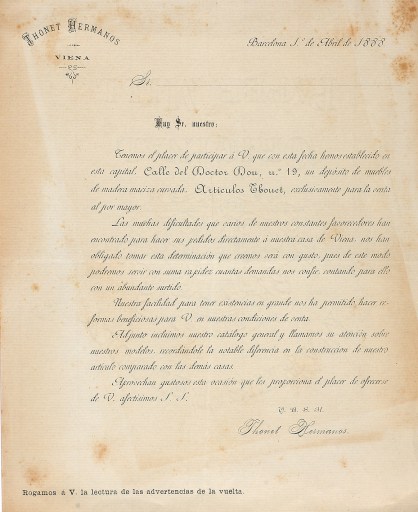 THONET HERMANOS
VIENA
Barcelona 1.º de Abril de 1888
Sr.
Muy Sr. nuestro:
Tenemos el placer de participar á V. que con esta fecha hemos establecido en
esta capital, Calle del Doctor Dou, n.º 19, un depósito de muebles
de madera maciza curvada, Artículos Thonet, exclusivamente para la venta
al por mayor.
Las muchas dificultades que varios de nuestros constantes favorecedores han
encontrado para hacer sus pedidos directamente á nuestra casa de Viena, nos han
obligado tomar esta determinación que creemos verá con gusto, pues de este modo
podremos servir con suma rapidez cuantas demandas nos confie, contando para ello
con un abundante surtido.
Nuestra facilidad para tener existencias en grande nos ha permitido, hacer re-
formas beneficiosas para V. en nuestras condiciones de venta.
Adjunto incluimos nuestro catálogo general y llamamos su atención sobre
nuestros modelos, recordándole la notable diferencia en la construcción de nuestro
artículo comparado con las demas casas.
Aprovechan gustosos esta ocasión que les proporciona el placer de ofrecerse
de V. afectísimos S. S.
Q. B. S. M.
Thonet Hermanos.
Rogamos á V. la lectura de las advertencias de la vuelta.